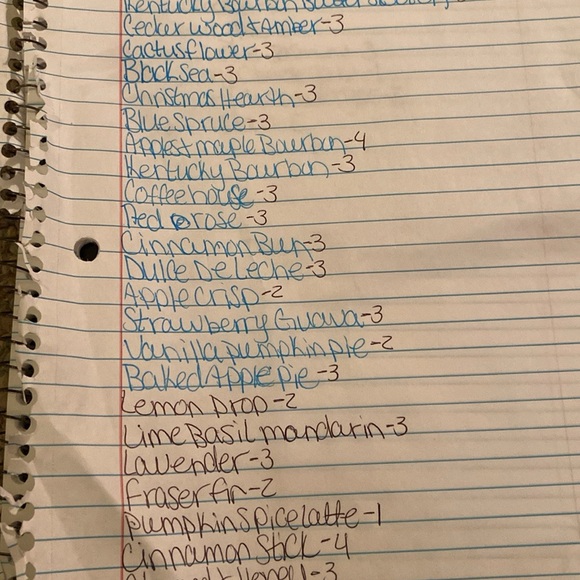 Kentucky Bourbon
Cecker wood & Amber-3
Cactusflower-3
Black Sea-3
Christmas Hearth-3
Blue Spruce-3
Apples & maple Bourbon-4
Kentucky Bourbon-3
Coffeehouse-3
Red rose-3
Cinnamon Bun-3
Dulce De Leche-3
Apple Crisp-2
Strawberry Guava-3
Vanilla pumpkin pie-2
Baked Apple pie-3
Lemon Drop-2
Lime Basil mandarin-3
Lavender-3
Fraser fir-2
pumpkin Spice latte-1
Cinnamon Stick-4